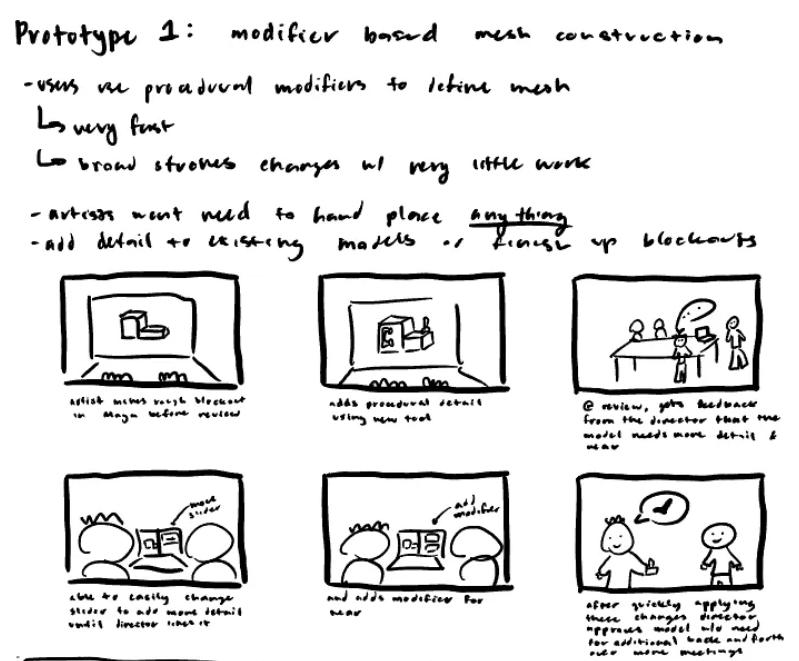 Prototype 1: modifier based mesh construction
- users use procedural modifiers to define mesh
↳ very fast
↳ broad strokes changes w/ very little work
- artists wont need to hand place anything
- add detail to existing models or finish up blockouts
artist makes rough blockout
in Maya before review
adds procedural detail
using new tool
@ review, gets feedback
from the director that the
model needs more detail &
wear
move
slider
able to easily change
slider to add more detail
until director likes it
add
modifier
and adds modifier for
wear
after quickly applying
these changes director
approves model w/o need
for additional back and forth
over more meetings